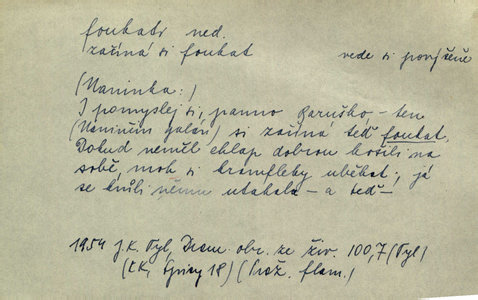 foukati ned.
začíná si foukat vede si povýšeně
(Naninka:)
I pomyslej si, panno Baruško, – ten
(Naninčin galán) si začíná teď foukat.
Dokud neměl chlap dobrou košili na
sobě, moh si kramfleky uběhat; já
se kvůli němu utahala – a teď –
1954 J. K. Tyl, Dram. obr. ze živ. 100,7 (Tyl)
(KK, Spisy 18) (Praž. flam.)